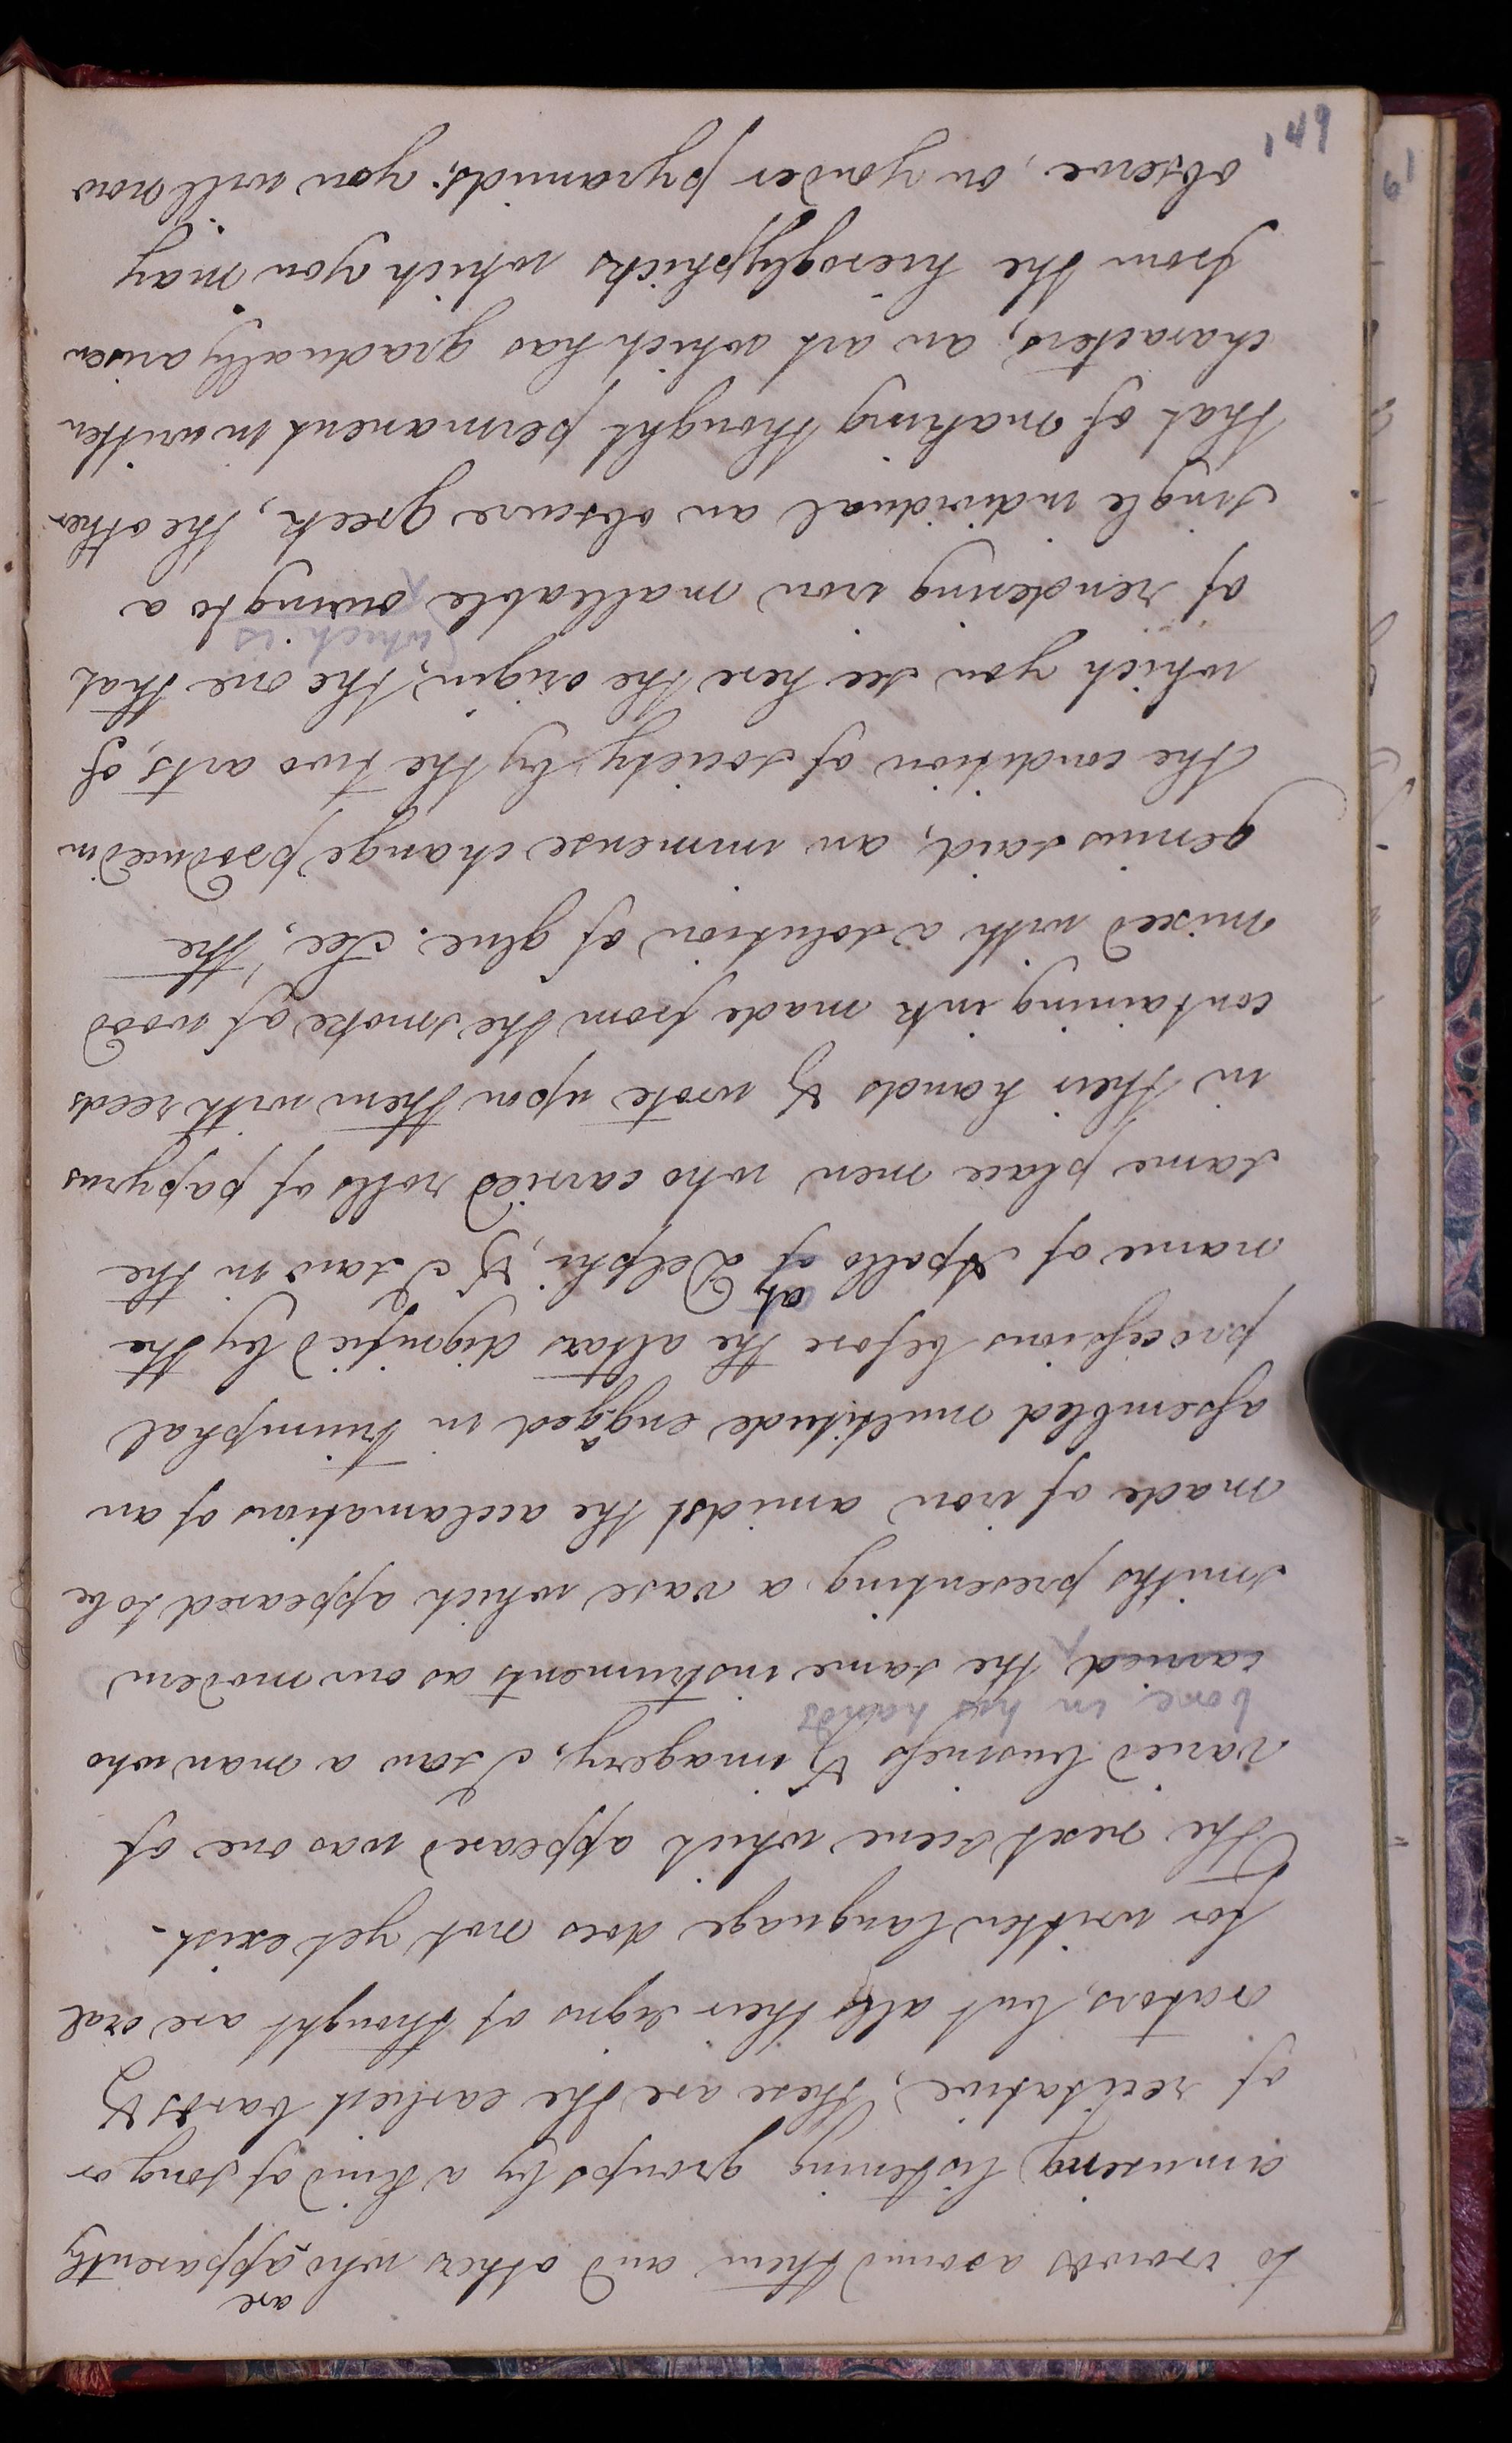 are
to crowds around them and others who apparently
amusing listening groups by a kind of song or
of recitative, these are the earliest bards &
orators, but all their signs of thought are oral
for written language does not yet exist.-
The next scene which appeared was one of
varied business & imagery, I saw a man who
bore in his hands
carried the same instruments as our modern
smiths presenting a vase which appeared to be
made of iron amidst the acclamations of an
assembled multitude engaged in triumphal
processions before the altars dignified by the
at
name of Apollo of Delphi; & I saw in the
same place men who carried rolls of papyrus
in their hands & wrote upon them with reeds
containing ink made from the smoke of wood
mixed with a solution of glue. See, the
genius said, an immense change produced in
the condition of society by the two arts, of
which you see here the origin; the one that
which is
of rendering iron malleable owing to a
single individual an obscure greek, the other
that of making thought permanent in written
characters, an art which has gradually arisen
from the hieroglyphicks which you may
observe, on yonder pyramids; you will now
149